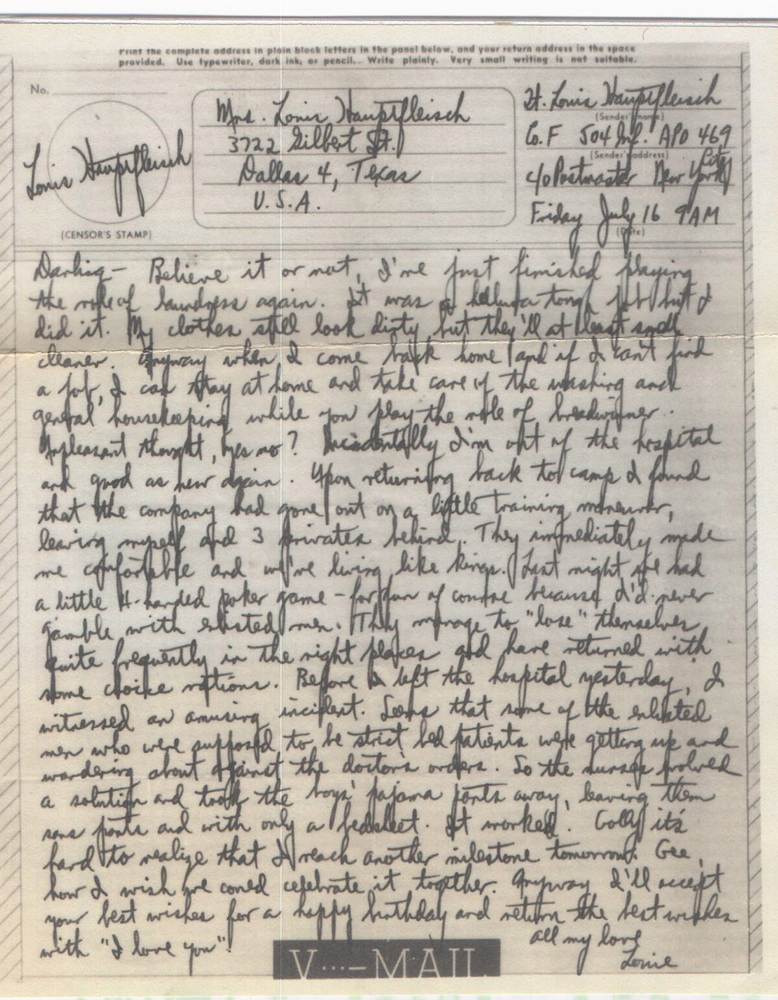 Print the complete address in plain black letters in the panel below, and your return address in the space
provided. Use typewriter, dark ink, or pencil. Write plainly. Very small writing is not suitable.
No.
Louis Hauptfleisch
(CENSOR'S STAMP)
Mrs. Louis Hauptfleisch
3722 Gilbert St.
Dallas 4, Texas
U.S.A.
Lt. Louis Hauptfleisch
(Sender's name)
Co. F 504 Inf. APO 469
(Sender's address)
c/o Postmaster New York City
Friday July 16 9 AM
(Date)
Darling - Believe it or not, I've just finished playing
the role of laundress again. It was a helluva tough job but I
did it. My clothes still look dirty but they'll at least smell
cleaner. Anyway when I come back home and if I can't find
a job, I can stay at home and take care of the washing and
general housekeeping while you play the role of breadwinner.
Unpleasant thought, yes no? Incidentally I'm out of the hospital
and good as new again. Upon returning back to camp I found
that the company had gone out on a little training maneuver,
leaving myself and 3 privates behind. They immediately made
me comfortable and we're living like kings. Last night we had
a little 4-handed poker game - for fun of course because I'd never
gamble with enlisted men. They manage to "lose" themselves
quite frequently in the right places and have returned with
some choice rations. Before I left the hospital yesterday, I
witnessed an amusing incident. Seems that some of the enlisted
men who were supposed to be strict bed patients were getting up and
wandering about against the doctor's orders. So the nurses evolved
a solution and took the boys' pajama pants away, leaving them
sans pants and with only a bedsheet. It worked. Golly it's
hard to realize that I reach another milestone tomorrow. Gee,
how I wish we could celebrate it together. Anyway I'll accept
your best wishes for a happy birthday and return the best wishes
with "I love you".
all my love
Louie
V···—MAIL